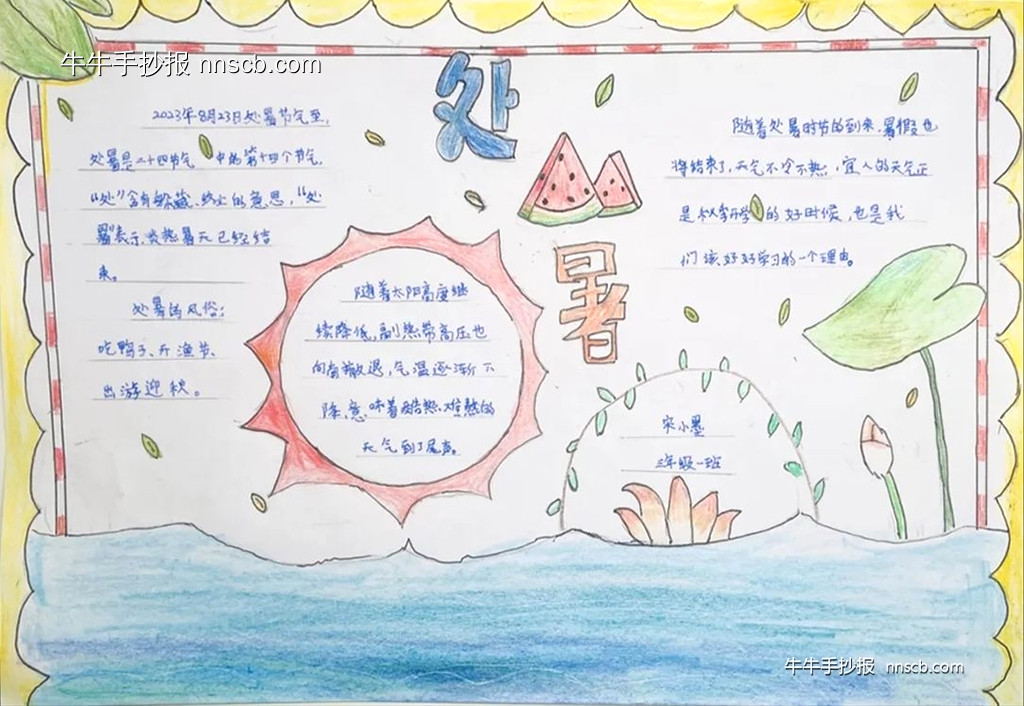 牛牛手抄报 nnscb.com
处
暑
2023年8月23日处暑节气至,
处暑是二十四节气中的第十四个节气,
“处”含有躲藏、终止的意思,“处
暑”表示炎热暑天已经结
束。
处暑的风俗:
吃鸭子、开渔节、
出游迎秋。
随着太阳高度继
续降低,副热带高压也
向南撤退,气温逐渐下
降,意味着酷热难熬的
天气到了尾声。
随着处暑时节的到来,暑假也
将结束了,天气不冷不热,宜人的天气正
是秋季开学的好时候,也是我
们该好好学习的一个理由。
宋小墨
三年级一班
牛牛手抄报 nnscb.com